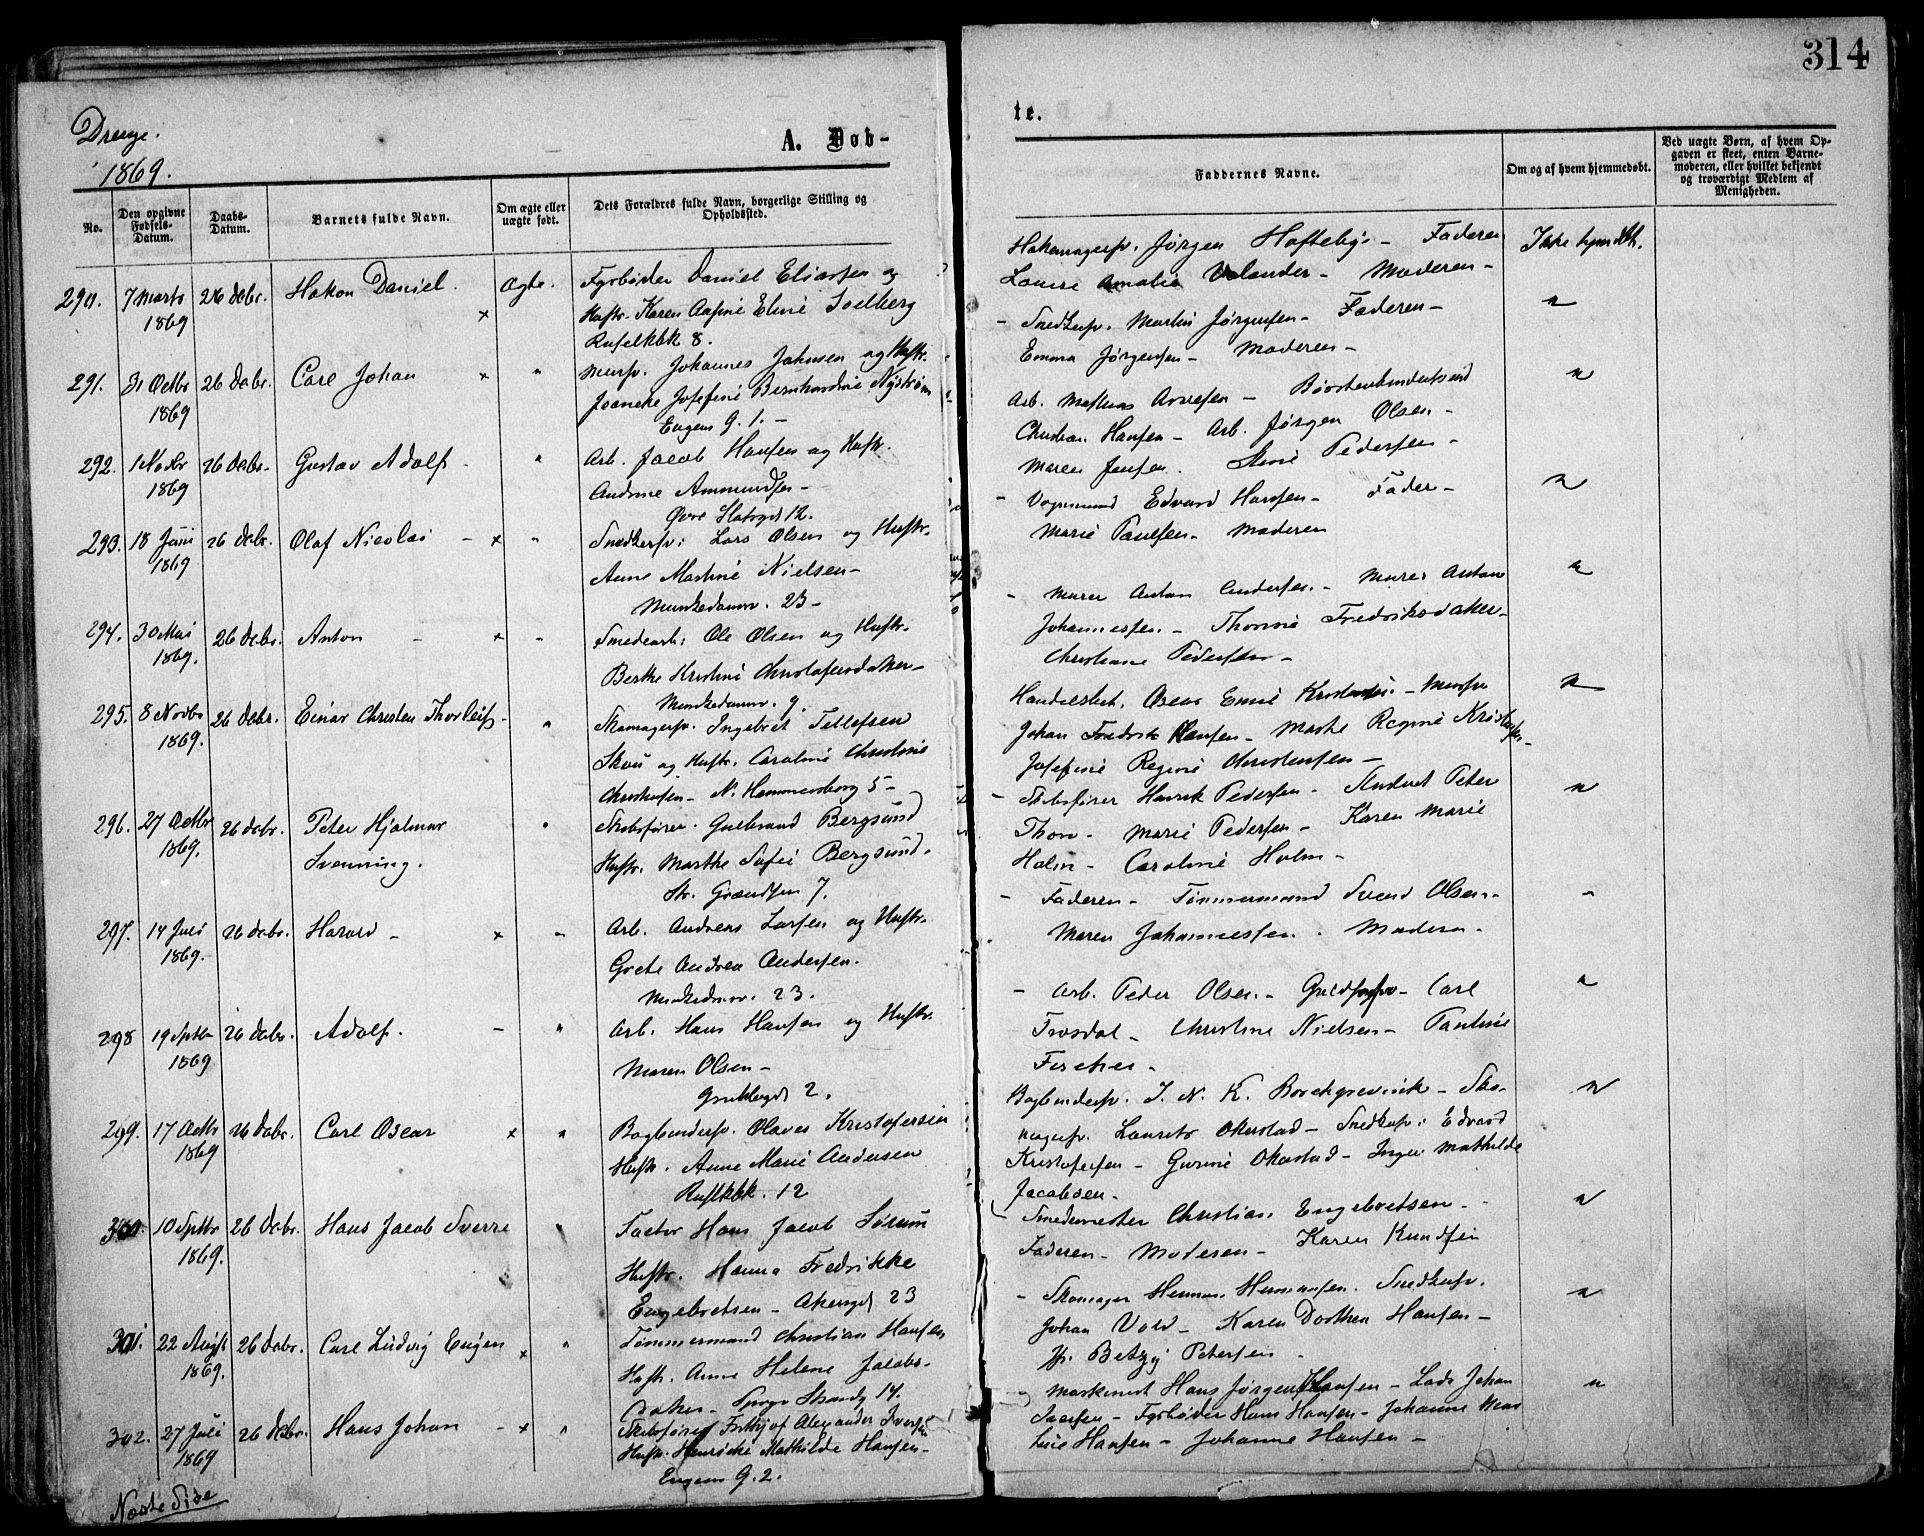 314
Drenge.
1869.
A. Døb-
No.
Den opgivne Fødsels-Datum.
Daabs-Datum.
Barnets fulde Navn.
Om ægte eller uægte født.
Dets Forældres fulde Navn, borgerlige Stilling og Opholdssted.
290. 7 Marts 1869 26 Decbr. Hakon Daniel. x Ægte. Fyrbøder Daniel Eliassen og
Hustr. Karen Eline Solberg
8.
291. 31 Octbr 1869 26 Decbr. Carl Johan x " Mursv. Johannes Johnsen og Hustr.
Josefine Bernhardine Nystrøm
Eugens G. 1. -
292. 1 Novbr 1869 26 Decbr. Gustav Adolf - " Arb. Jacob Hansen og Hustr.
Andrine Ammundsen -
Øvre Slotsgd 12.
293. 18 Juni 1869 26 Decbr. Olaf Nicolai - x " Snedkersv. Lars Olsen og Hustr.
Anne Martine Nielsen -
Munkedamsv. 23 -
294. 30 Mai 1869. 26 Decbr. Anton - x " Smedearb. Ole Olsen og Hustr.
Berthe Kristine Christofersdatter -
Munkedamsv. 9.
295. 8 Novbr 1869. 26 Decbr. Einar Christen Thorleif - " Skomagersv. Ingebret Tellefsen
Skou og Hustr. Caroline Christine
Christensen - N. Hammersborg 5 -
296. 27 Octbr 1869. 26 Decbr. Peter Hjalmar Svenning. " Skibsfører Gulbrand Bergsund
Hustr. Marthe Sofie Bergsund.
St. Grændsen 7.
297. 14 Juli 1869. 26 Decbr. Harald - x " Arb. Andreas Larsen og Hustr.
Grete Andrea Andersen.
Munkedamsv. 23.
298 19 Septbr 1869 26 Decbr. Adolf. - " Arb. Hans Hansen og Hustr.
Maren Olsen -
2.
299. 17 Octbr 1869 26 Decbr. Carl Oscar x " Bogbindersv. Olaves Kristofersen
Hustr. Anne Marie Andersen
12
300. 10 Septbr 1869. 26 Decbr. Hans Jacob Sverre " Factor Hans Jacob Sørum
Hustr. Hanna Fredrikke
Engebretsen - Akersgd 23
301. 22 August 1869. 26 Decbr. Carl Ludvig Eugen x " Tømmermand Christian Hansen
Hustr. Anne Helene Jacobs-
datter - Strandg 14.
302. 27 Juli 1869 26 Decbr. Hans Johan - x " Skibsfører Frithjof Alexander Iversen
Hustr. Henricke Mathilde Hansen -
Eugens G. 2.
Næste Side
te.
Faddernes Navne.
Om og af hvem hjemmedøbt.
Ved uægte Børn, af hvem Opgaven er skeet, enten Barnemoderen, eller hvilket bekjendt og troværdigt Medlem af Menigheden.
Jørgen Hofteby - Faderen Ikke hjemdbt.
Louise Amalie - Moderen -
- Snedkersv. Martin Jørgensen - Faderen - "
Emma Jørgensen - Moderen -
Arb. Mathias Arvesen - Børstenbindersvend "
Christian Hansen - Arb. Jørgen Olsen -
Maren Jensen. Pedersen -
- Vognmand Edvard Hansen - Fader - "
Marie Paulsen - Moderen
- Murer Anton Andersen - Murer Anton "
Johannessen - Thorine Fredriksdatter -
Christiane Pedersen -
Handelsbet. Oscar Emil - Mursv "
Johan Fredrik Hansen - Marthe Regine
Josefine Regine Christensen -
- Skibsfører Henrik Pedersen - Student Peter "
Thon - Marie Pedersen - Karen Marie
Holm - Caroline Holm -
- Faderen - Tømmermand Svend Olsen - "
Maren Johannessen. Moderen -
- Arb. Peder Olsen - Carl "
Trosdal - Christine Nielsen - Pauline
Fischer -
Bogbindersv. J. N. K. Borchgrevinck - Sko- "
magersv. Laurits Okerstad - Snedkersv. Edvard
Kristofersen - Gurine Okerstad - Inger Mathilde
Jacobsen -
Smedemester Christian Engebretsen - "
Faderen - Moderen - Karen Knudsen
- Skomager Herman Hermansen. Snedkersv. "
Johan Vold - Karen Dorthea Hansen -
Fr. Betzy Petersen -
Maskinist Hans Jørgen Hansen - Lods Johan "
Iversen - Fyrbøder Hans Hansen - Johanne
Hansen - Johanne Hansen -